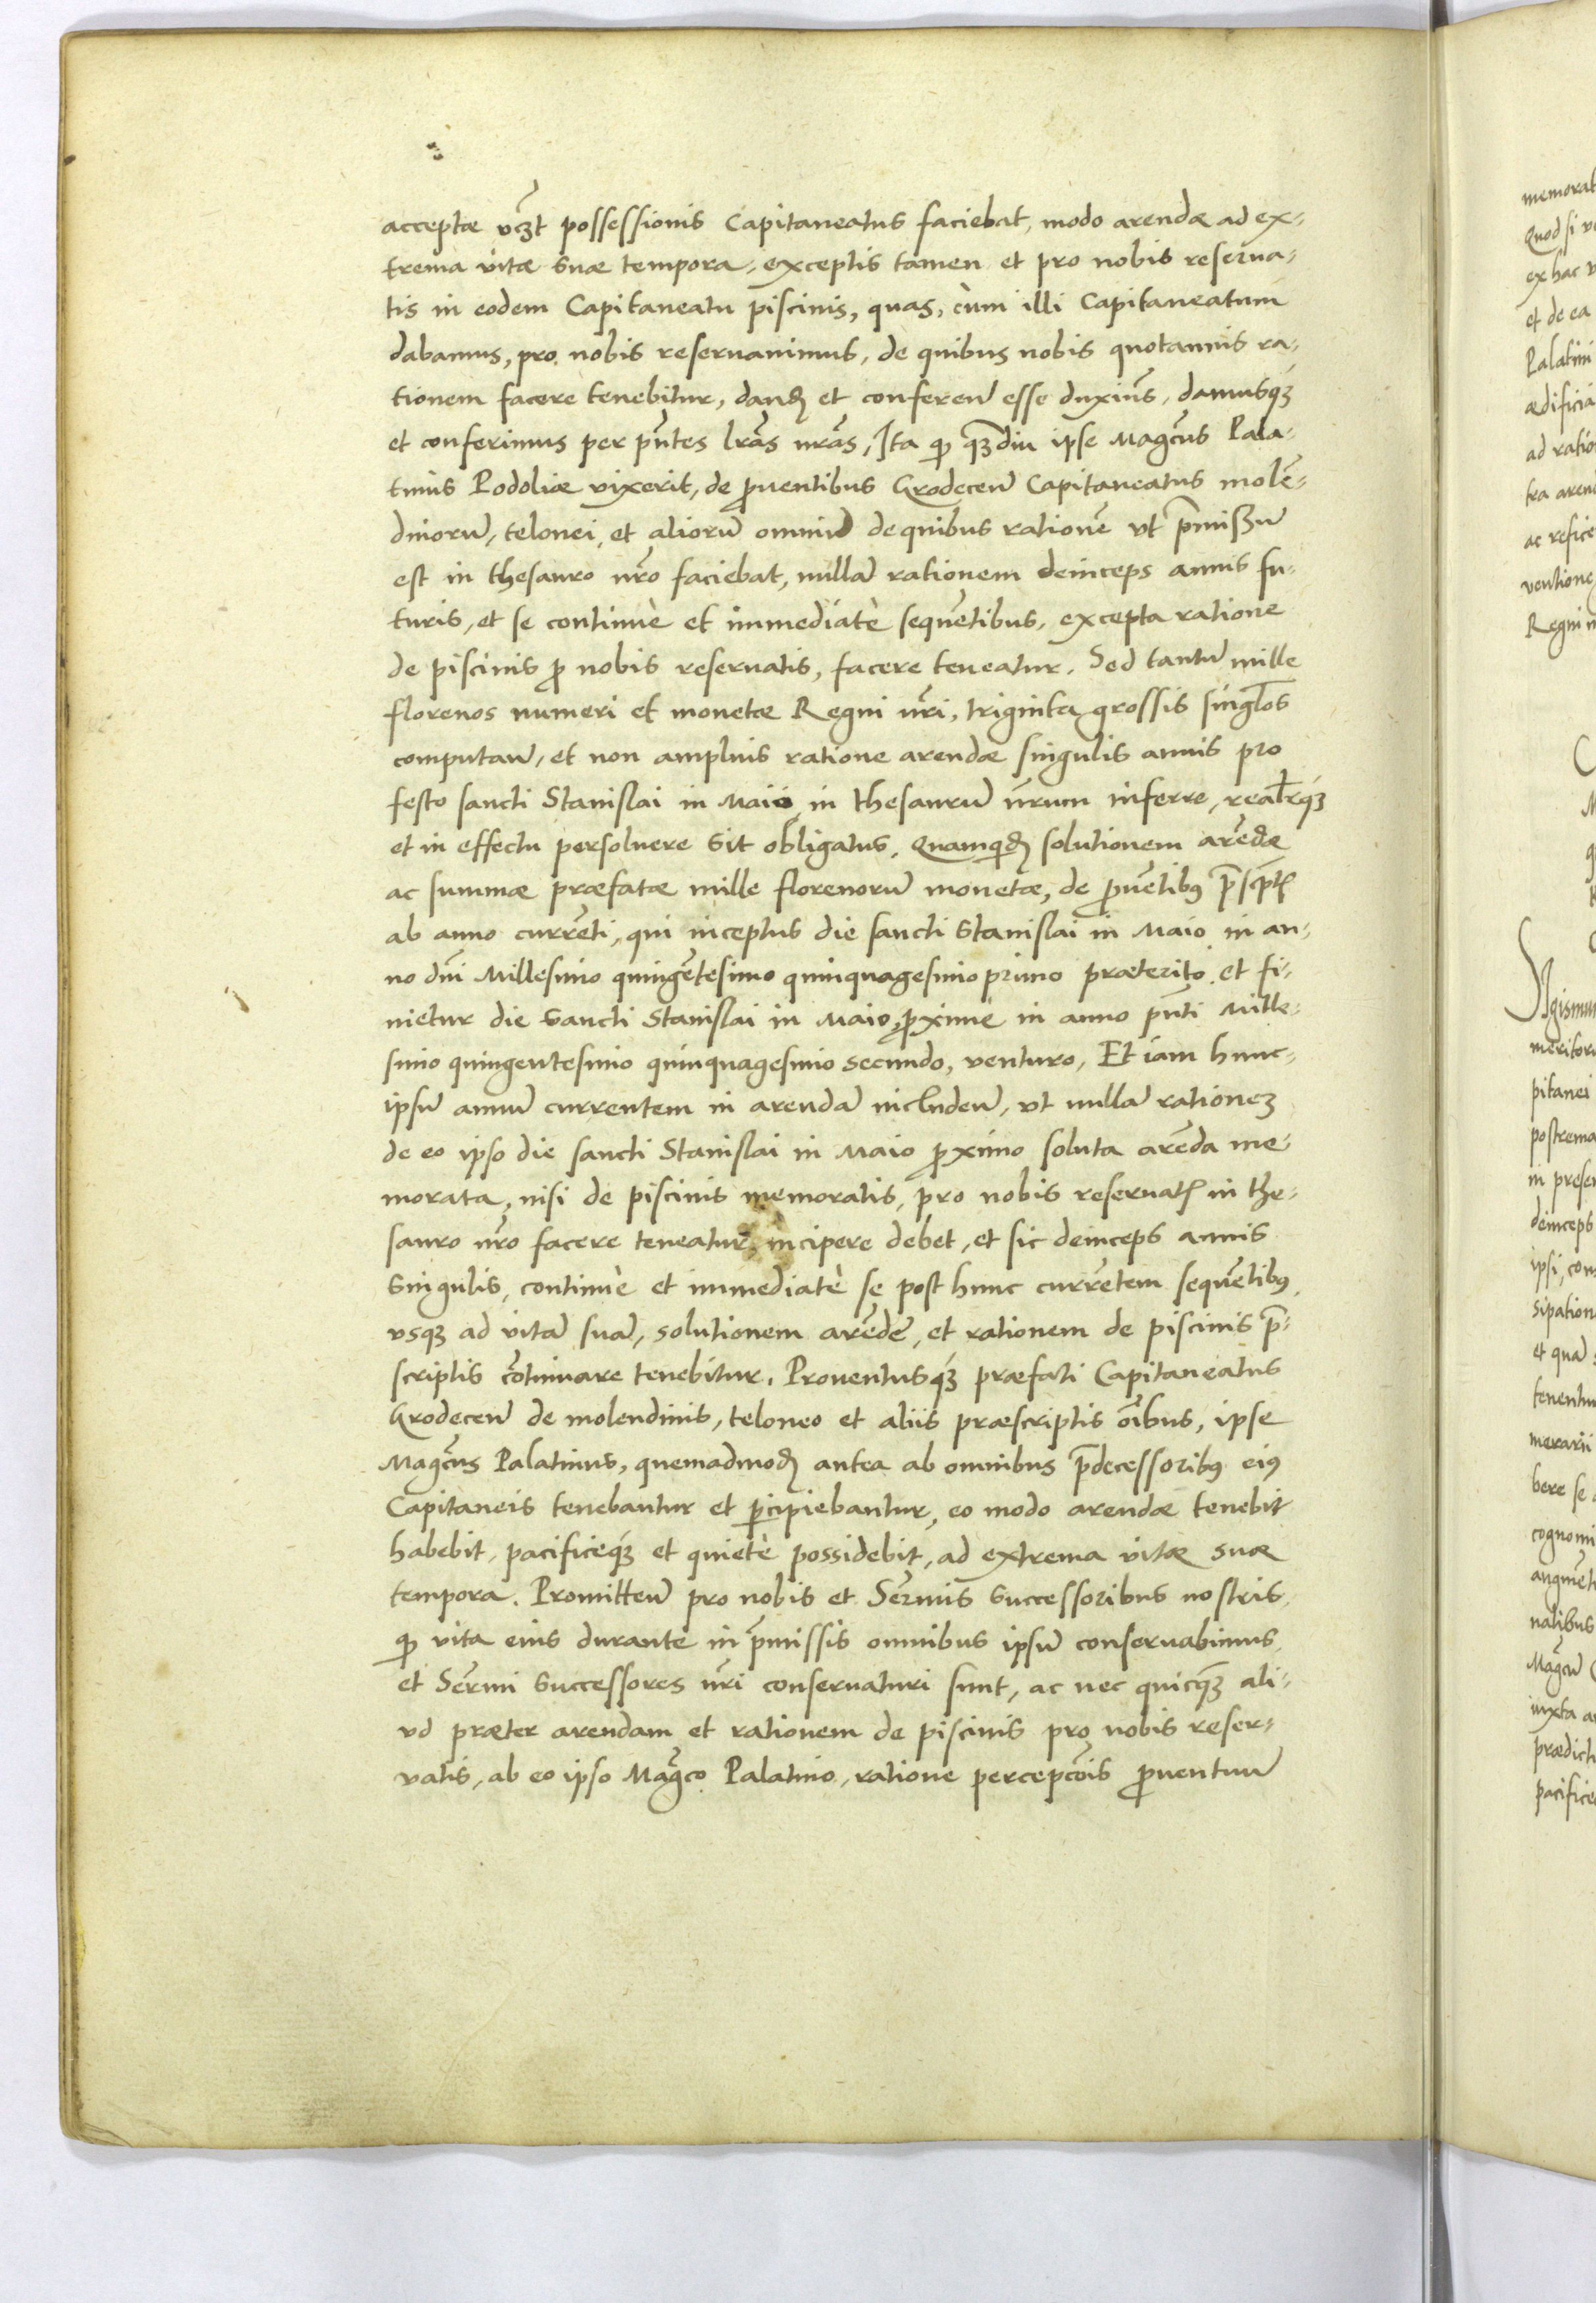 acceptæ vczt possessionis Capitaneatus faciebat, modo arendæ ad ex-
trema vitæ suæ tempora, exceptis tamen et pro nobis reserua-
tis in eodem Capitaneatu piscinis, quas, cùm illi Capitaneatum
dabamus, pro nobis reseruauimus, de quibus nobis quotannis ra-
tionem facere tenebitur, dand et conferen̄ esse duxim̄s, damusq́ꝫ
et conferimus per pn̄tes lr̄as nr̄as, Ita ꝙ qꝫdiu ipse Magc̄us Pala-
tinus Podoliæ vixerit, de ꝓuentibus Grodecen̄ Capitaneatus molē-
dinorū, telonei, et aliorū omniū de quibus rationē vt p̄missū
est in thesauro nr̄o faciebat, nullā rationem deinceps annis fu-
turis, et se continuè et immediatè sequētibus, excepta ratione
de piscinis ꝓ nobis reseruatis, facere teneatur. Sed tantū mille
florenos numeri et monetæ Regni nr̄i, triginta grossis singl̄os
computan̄, et non amplius ratione arendæ singulis annis pro
festo sancti Stanislai in Maio, in thesaurū nr̄um inferre, realr̄q́ꝫ
et in effectu persoluere sit obligatus, Quamquid solutionem arēdæ
ac summæ præfatæ mille florenorū monetæ, de ꝓuētibꝰ p̄scpt
ab anno currēti, qui inceptus die sancti Stanislai in Maio in an-
no dn̄i Millesimo quingētesimo quinquagesimo primo præterito, et fi-
nietur die Sancti Stanislai in Maio, ꝓximè in anno pn̄ti Mille-
simo quingentesimo quinquagesimo secundo, venturo, Et iam hunc
ipsū annū currentem in arendā includen̄, vt nullā rationeꝫ
de eo ipso die sancti Stanislai in Maio ꝓximo soluta arēda me-
morata, nisi de piscinis memoratis, pro nobis reseruat in the-
sauro nr̄o facere teneatur, incipere debet, et sic deinceps annis
singulis, continuè et immediatè se post hunc currētem sequētibꝰ
vsqꝫ ad vitā suā, solutionem arēdę, et rationem de piscinis p̄-
scriptis cōtinuare tenebitur. Prouentusq́ꝫ præfati Capitaneatus
Grodecen̄ de molendinis, teloneo et aliis præscriptis oībus, ipse
Magc̄us Palatinus, quemadmod antea ab omnibus p̄decessoribꝰ eiꝰ
Capitaneis tenebantur et ꝑcipiebantur, eo modo arendæ tenebit
habebit, pacificeq́ꝫ et quietè possidebit, ad extrema vitæ suæ
tempora. Promitten̄ pro nobis et Ser̄mis Successoribus nostris,
ꝙ vita eius durante in p̄missis omnibus ipsū conseruabimus,
et Ser̄mi Successores nr̄i conseruaturi sunt, ac nec quicqꝫ ali-
ud præter arendam et rationem de piscinis pro nobis reser-
uatis, ab eo ipso Magc̄o Palatino, ratione percepcōis ꝓuentuū
memorat
Quod si
ex hac
et de ea
Palatini
ædificia
ad ratio
tra aren
ac refice
uentione
Regni
meritor
pitanei
postrema
in presen
deinceps
ipsi, con
sipation
et quā
tenentur
bere se
cognomi
augmēt
nalibus
Magc̄u
iuxta
prædict
pacifice